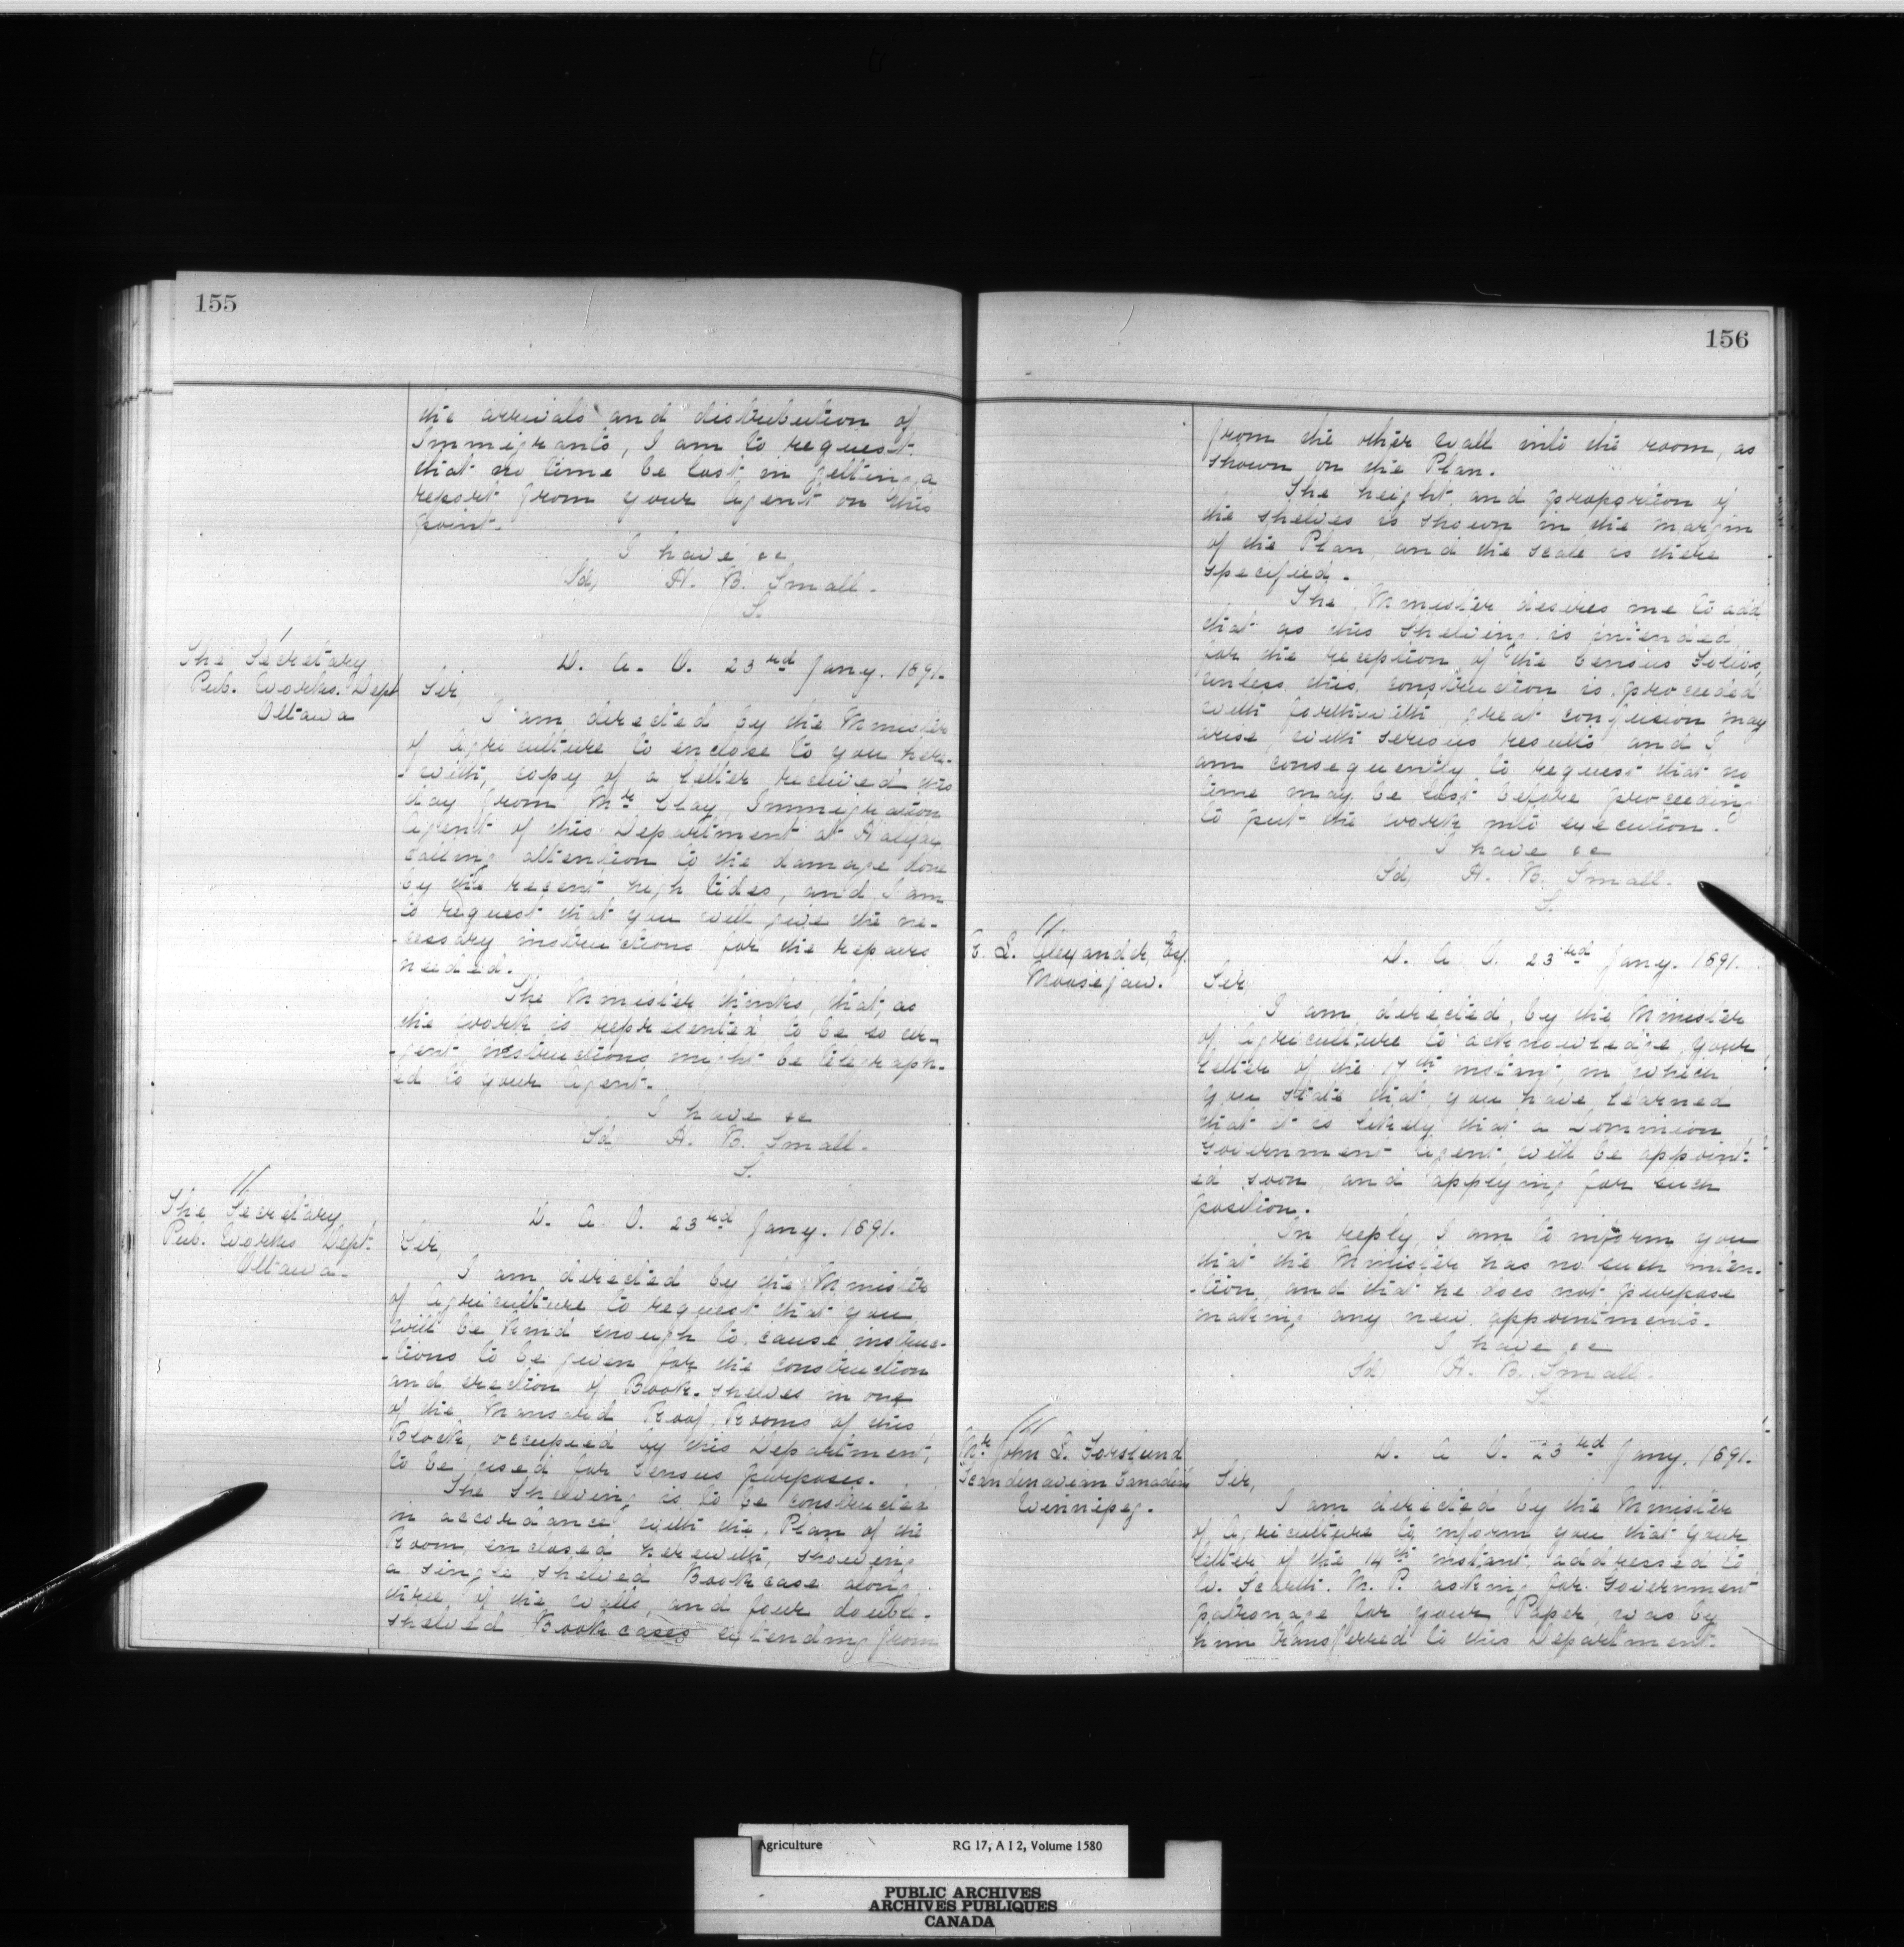 155
the arrivals and distribution of
Immigrants, I am to request
that no time be lost in getting a
report from your Agent on this
point.
I have &c
Sd, H. B. Small.
S.
/
The Secretary
Pub. Works. Dept
Ottawa
D. A. O. 23rd Jany. 1891.
Sir,
I am directed by the Minister
of Agriculture to enclose to you here-
-with, copy of a letter received this
day from Mr Clay, Immigration
Agent of this Department at Halifax
calling attention to the damage done
by the recent high tides, and I am
to request that you will give the ne-
-cessary instructions for the repairs
needed.
The Minister thinks, that, as
the work is represented to be so ur-
-gent, instructions might be telegraph-
ed to your Agent.
I have &c
Sd H. B. Small.
S.
//
The Secretary
Pub. Works Dept.
Ottawa.
D. A. O. 23rd Jany. 1891.
Sir,
I am directed by the Minister
of Agriculture to request that you
will be kind enough to cause instruc-
-tions to be given for the construction
and erection of Book-shelves in one
of the Mansard Roof Rooms of this
Block, occupied by this Department,
to be used for Census purposes.
The Shelving is to be constructed
in accordance with the Plan of the
Room, enclosed herewith, showing
a single shelved Bookcase along
three of the walls, and four double-
shelved Bookcases extending from
156
from the other wall into the room, as
shown on the Plan.
The height and proportion of
the shelves is shown in the margin
of the Plan, and the scale is there
specified.
The Minister desires me to add
that as this Shelving is intended
for the reception of the Census Folios,
unless this construction is proceeded
with forthwith, great confusion may
arise, with serious results, and I
am consequently to request that no
time may be lost before proceeding
to put the work into execution.
I have &c
Sd, H. B. Small.
S.
//
L. Alexander, Esq.
Moosejaw.
D. A. O. 23rd Jany. 1891.
Sir
I am directed, by the Minister
of Agriculture to acknowledge your
letter of the 17th instant, in which
you state that you have learned
that it is likely that a Dominion
Government Agent will be appoint-
ed soon, and applying for such
position.
In reply, I am to inform you
that the Minister has no such inten-
-tion, and that he does not purpose
making any new appointments.
I have &c
Sd H. B. Small.
S.
///
Mr John S. Forslund
Scandinavian Canadian
Winnipeg.
D. A. O. 23rd Jany. 1891.
Sir,
I am directed by the Minister
of Agriculture to inform you that your
letter of the 14th instant, addressed to
W. Scarth. M. P. asking for Government
patronage for your Paper, was by
him transferred to this Department.
Agriculture RG 17, A I 2, Volume 1580
PUBLIC ARCHIVES
ARCHIVES PUBLIQUES
CANADA